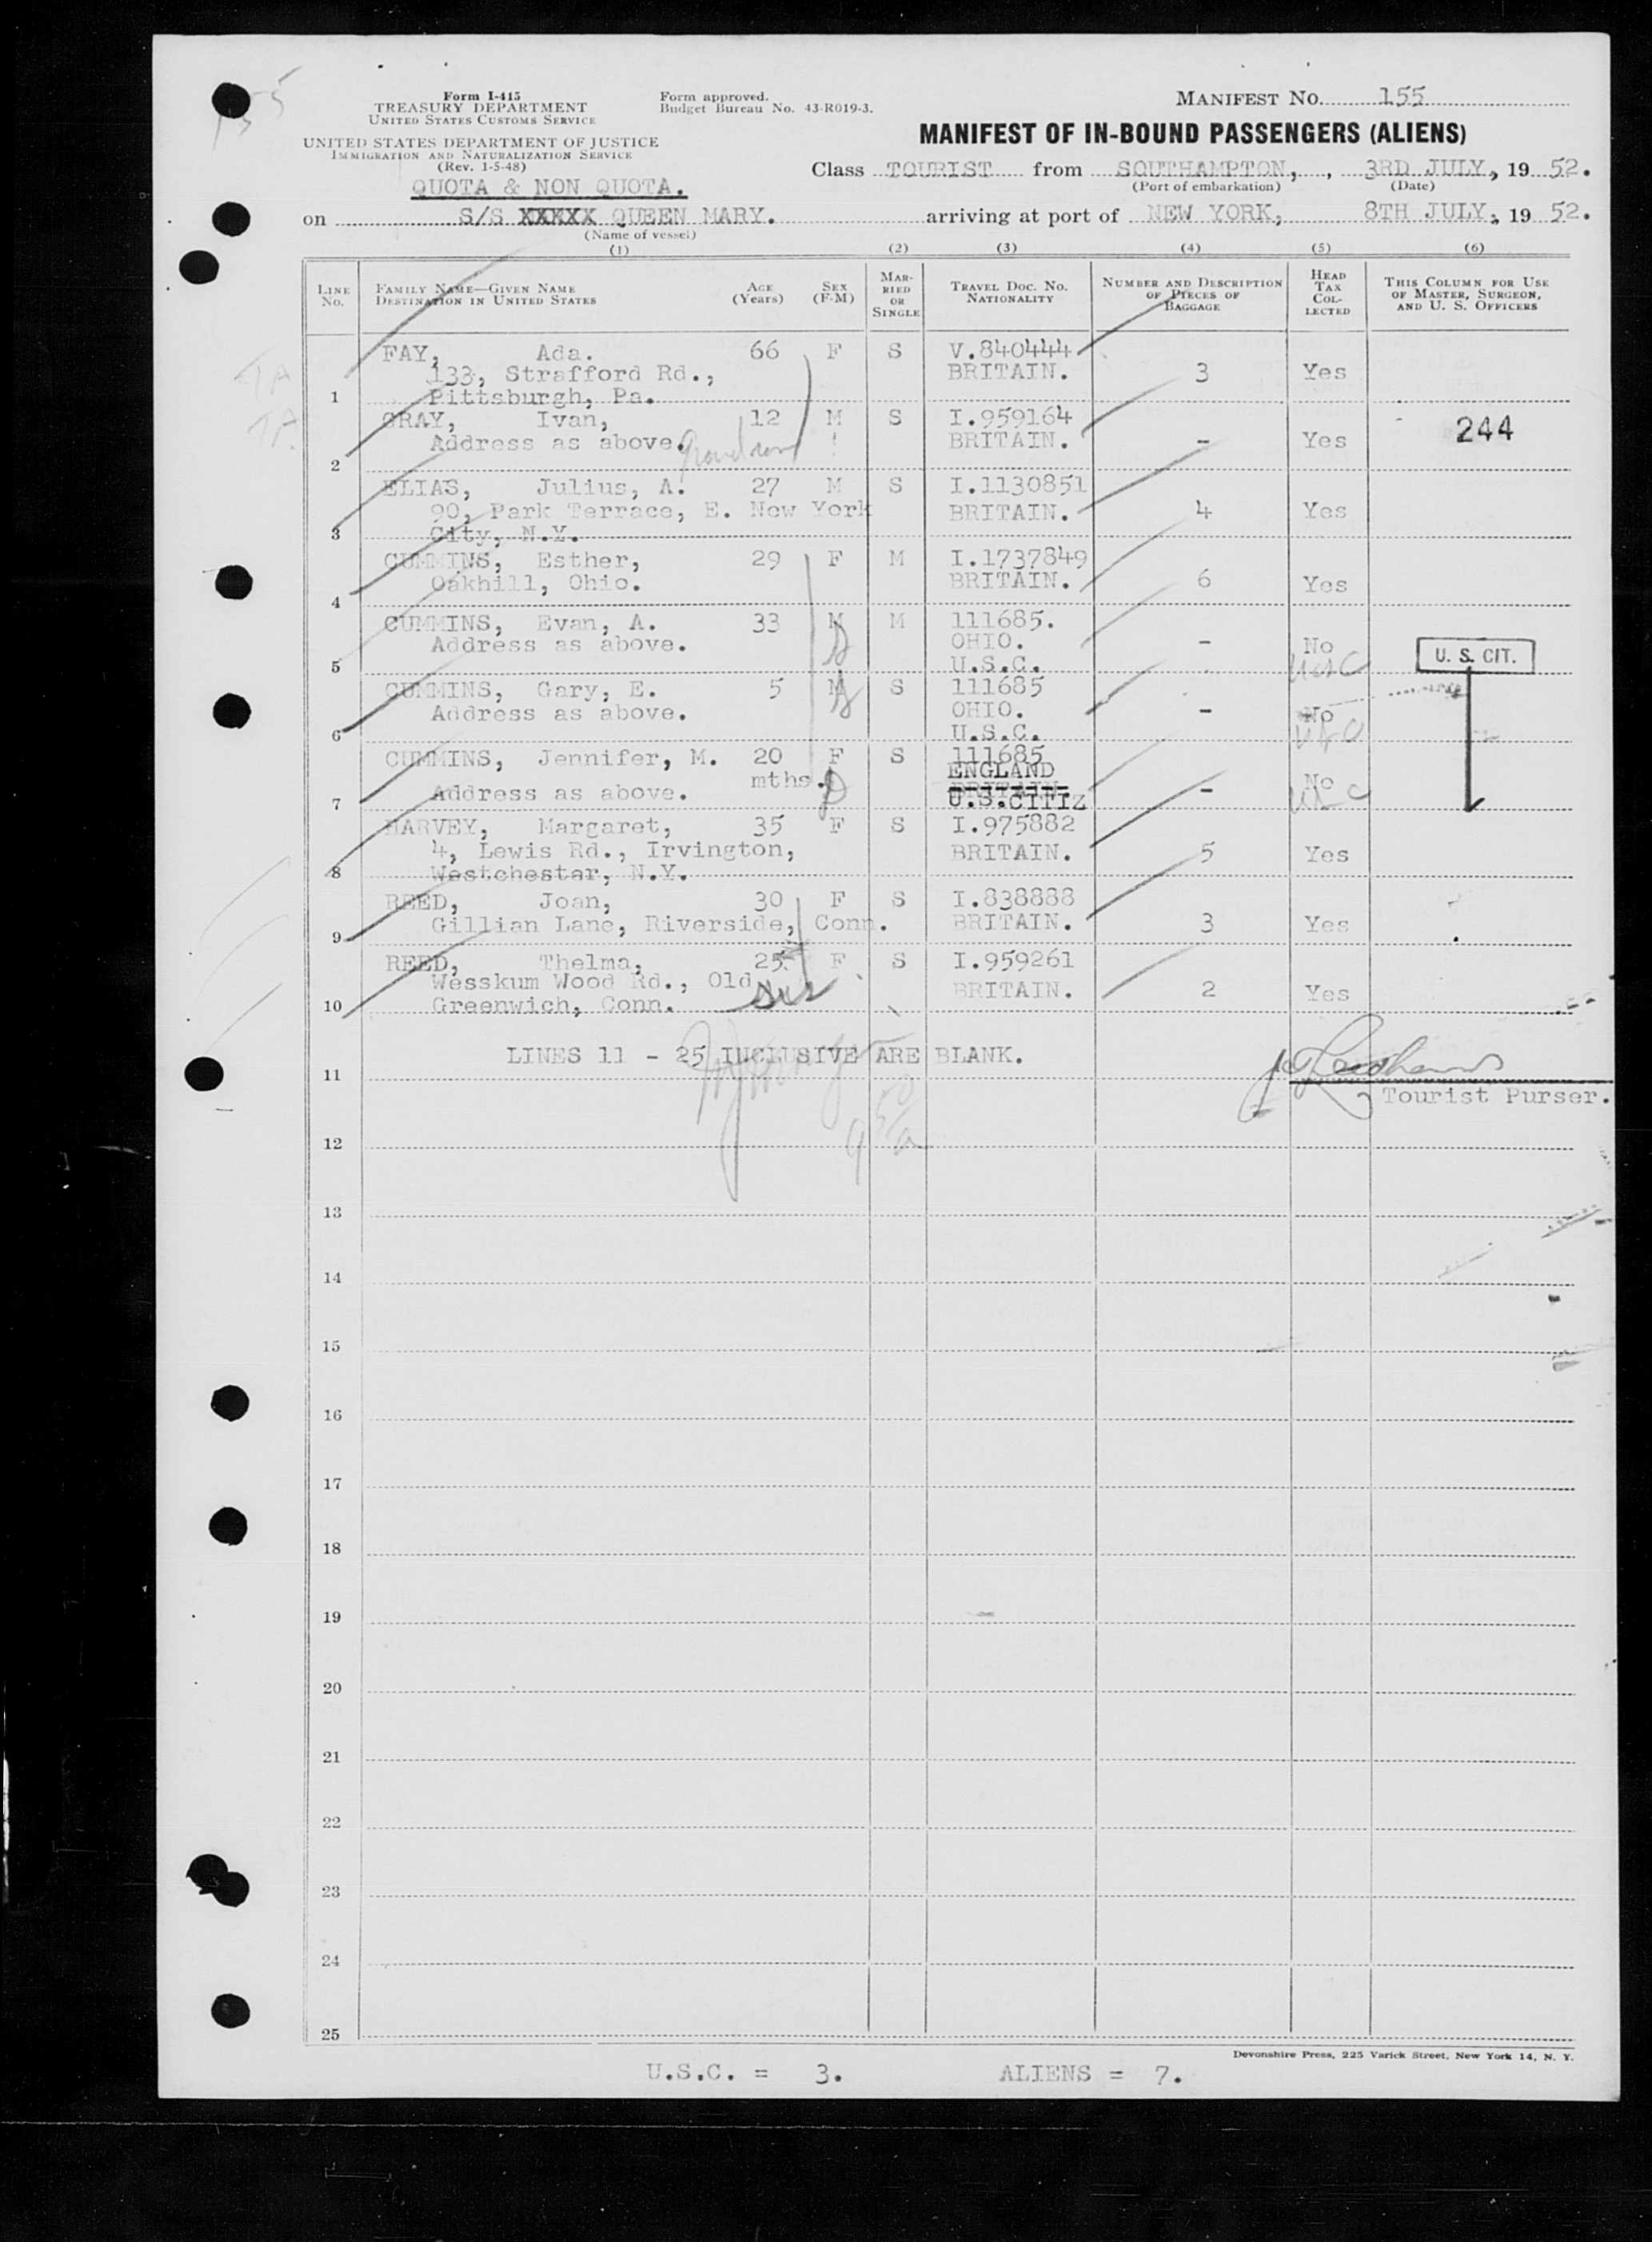 Form I-415
TREASURY DEPARTMENT
UNITED STATES CUSTOMS SERVICE
UNITED STATES DEPARTMENT OF JUSTICE
IMMIGRATION AND NATURALIZATION SERVICE
(Rev. 1-5-48)
Form approved.
Budget Bureau No. 43-R019-3.
MANIFEST No. 155
MANIFEST OF IN-BOUND PASSENGERS (ALIENS)
Class TOURIST from SOUTHAMPTON, , 3RD JULY, 19 52.
(Port of embarkation) (Date)
QUOTA & NON QUOTA.
on S/S XXXXX QUEEN MARY. arriving at port of NEW YORK, 8TH JULY, 19 52.
(Name of vessel)
(1) (2) (3) (4) (5) (6)
LINE No. FAMILY NAME—GIVEN NAME DESTINATION IN UNITED STATES AGE (Years) SEX (F-M) MARRIED OR SINGLE TRAVEL DOC. NO. NATIONALITY NUMBER AND DESCRIPTION OF PIECES OF BAGGAGE HEAD TAX COLLECTED THIS COLUMN FOR USE OF MASTER, SURGEON, AND U. S. OFFICERS
FAY, Ada. 66 F S V.840444
133, Strafford Rd., BRITAIN. 3 Yes
1 Pittsburgh, Pa.
GRAY, Ivan, 12 M S I.959164
Address as above. grandson BRITAIN. - Yes 244
2
ELIAS, Julius, A. 27 M S I.1130851
90, Park Terrace, E. New York BRITAIN. 4 Yes
3 City, N.Y.
CUMMINS, Esther, 29 F M I.1737849
Oakhill, Ohio. BRITAIN. 6 Yes
4
CUMMINS, Evan, A. 33 M M 111685.
Address as above. OHIO. - No
5 U.S.C. USC U. S. CIT.
CUMMINS, Gary, E. 5 M S 111685
Address as above. OHIO. - No
6 U.S.C. USC
CUMMINS, Jennifer, M. 20 F S 111685
mths. ENGLAND
Address as above. BRITAIN - No
7 U.S.CITIZ USC
HARVEY, Margaret, 35 F S I.975882
4, Lewis Rd., Irvington, BRITAIN. 5 Yes
8 Westchester, N.Y.
REED, Joan, 30 F S I.838888
Gillian Lane, Riverside, Conn. BRITAIN. 3 Yes
9
REED, Thelma, 25 F S I.959261
Wesskum Wood Rd., Old sis BRITAIN. 2 Yes
10 Greenwich, Conn.
LINES 11 - 25 INCLUSIVE ARE BLANK.
11
Tourist Purser.
12
13
14
15
16
17
18
19
20
21
22
23
24
25
Devonshire Press, 225 Varick Street, New York 14, N. Y.
U.S.C. = 3. ALIENS = 7.